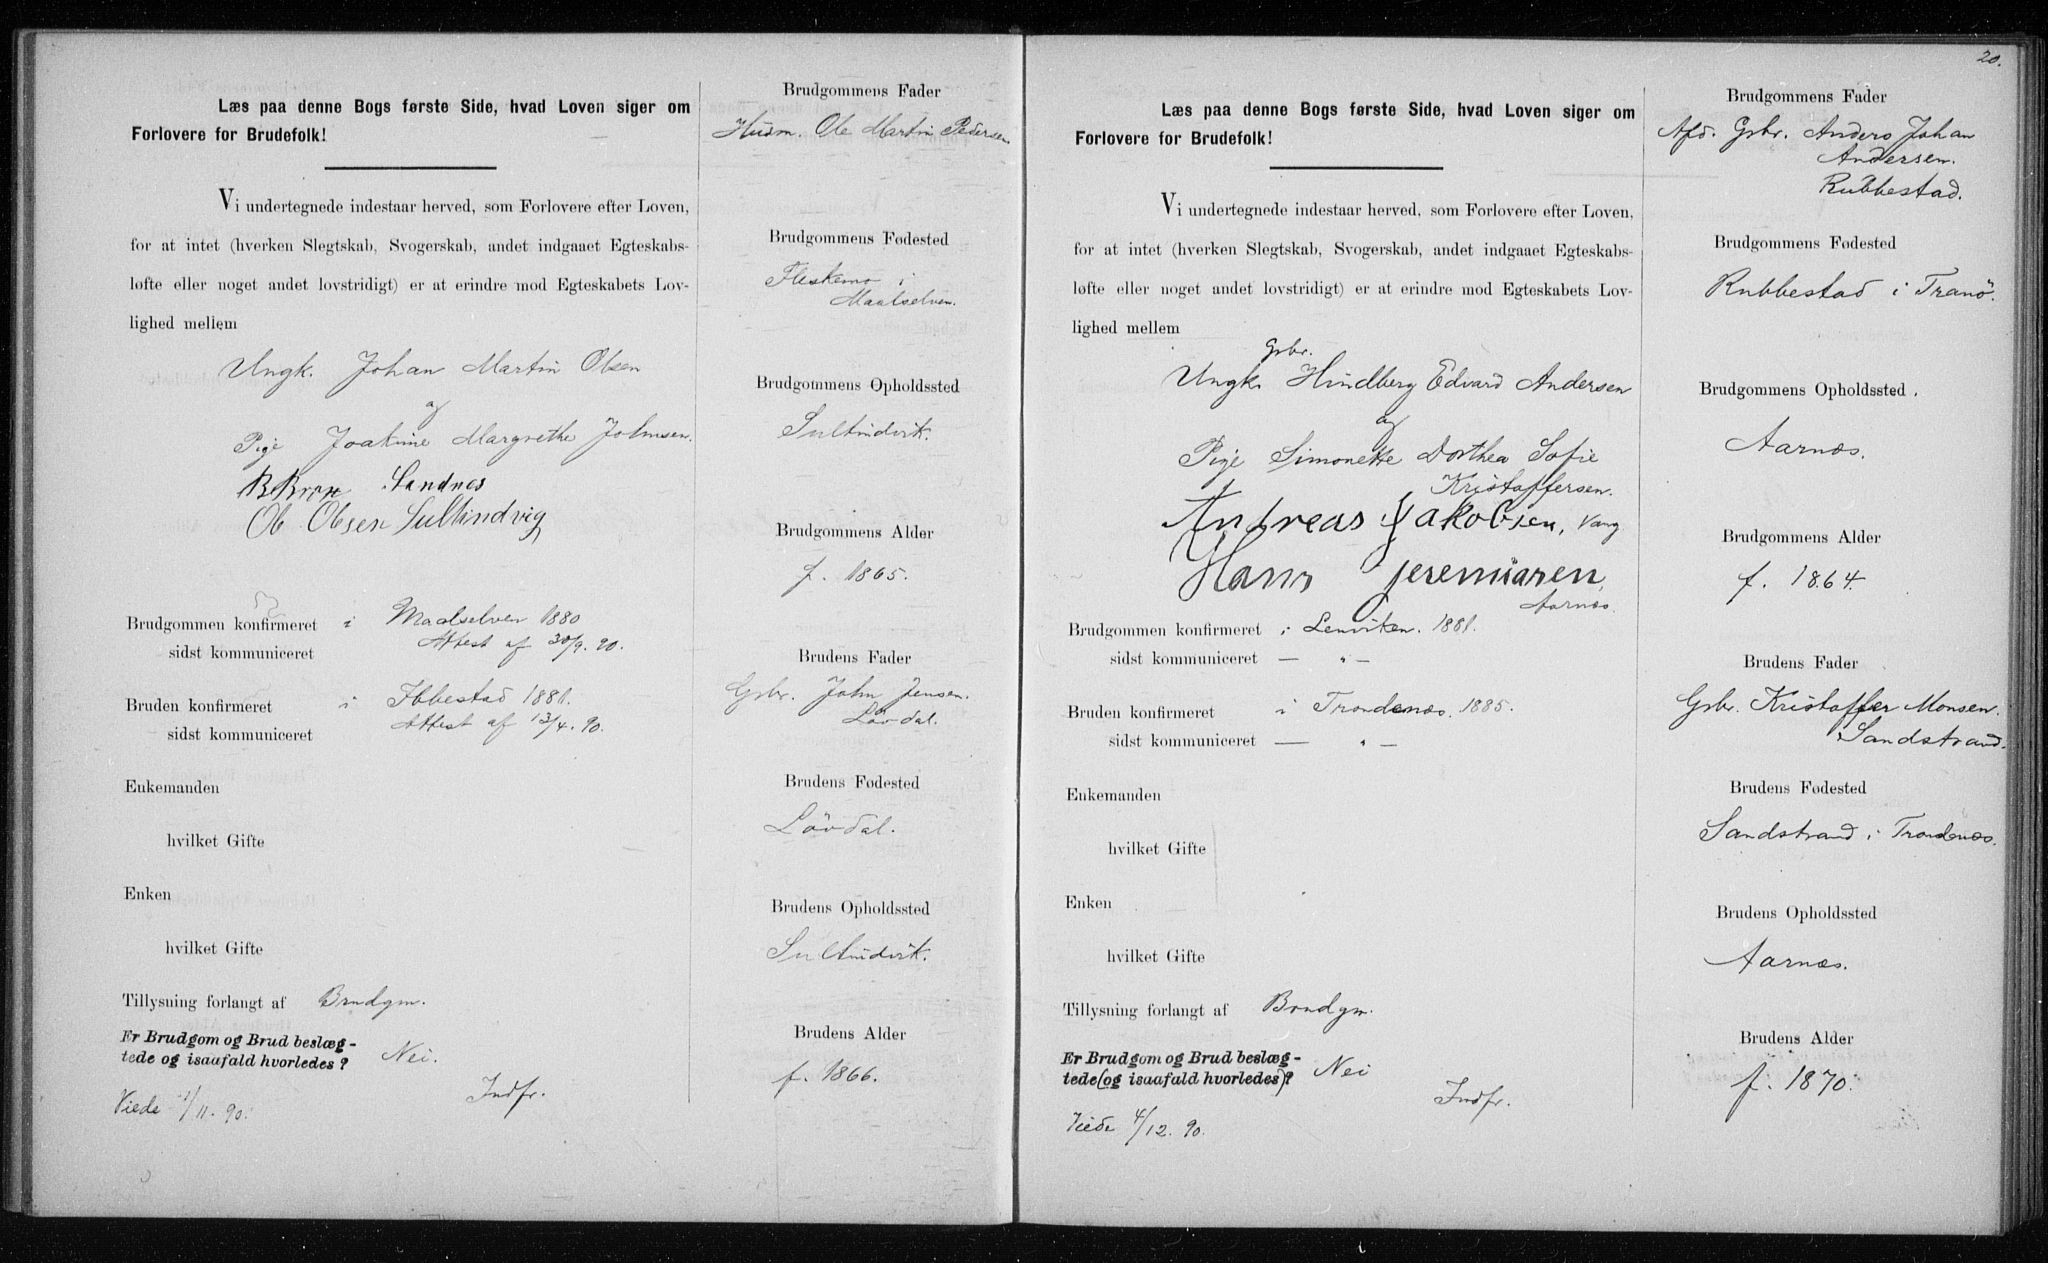 Læs paa denne Bogs første Side, hvad Loven siger om
Forlovere for Brudefolk!
Vi undertegnede indestaar herved, som Forlovere efter Loven,
for at intet (hverken Slegtskab, Svogerskab, andet indgaaet Egteskabs-
løfte eller noget andet lovstridigt) er at erindre mod Egteskabets Lov-
lighed mellem
Ungk. Johan Martin Olsen
og
Pige Joakime Margrethe Johnsen.
Sandnes
Ole Olsen Sultindvig
Brudgommen konfirmeret i Maalselven 1880
sidst kommuniceret Attest af 30/9. 90.
Bruden konfirmeret i Ibbestad 1881.
sidst kommuniceret Attest af 13/4. 90.
Enkemanden
hvilket Gifte
Enken
hvilket Gifte
Tillysning forlangt af Brudgm.
Er Brudgom og Brud beslæg-
tede og isaafald hvorledes? Nei.
Indfr.
Viede 1/11. 90.
Brudgommens Fader
Husm. Ole Martin Pedersen.
Brudgommens Fødested
Fleskemo i
Maalselven.
Brudgommens Opholdssted
Sultindvik.
Brudgommens Alder
f. 1865.
Brudens Fader
Gsbr. John Jensen.
Lövdal.
Brudens Fødested
Lövdal.
Brudens Opholdssted
Sultindvik.
Brudens Alder
f. 1866.
20.
Læs paa denne Bogs første Side, hvad Loven siger om
Forlovere for Brudefolk!
Vi undertegnede indestaar herved, som Forlovere efter Loven,
for at intet (hverken Slegtskab, Svogerskab, andet indgaaet Egteskabs-
løfte eller noget andet lovstridigt) er at erindre mod Egteskabets Lov-
lighed mellem
Gsbr.
Ungk. Hindberg Edvard Andersen
og
Pige Simonette Dorthea Sofie
Kristoffersen.
Andreas Jakobsen, Vang
Hans Jeremiasen,
Aarnæs.
Brudgommen konfirmeret i Lenviken. 1881.
sidst kommuniceret — " —
Bruden konfirmeret i Trondenæs. 1885.
sidst kommuniceret — " —
Enkemanden
hvilket Gifte
Enken
hvilket Gifte
Tillysning forlangt af Brudgm.
Er Brudgom og Brud beslæg-
tede (og isaafald hvorledes)? Nei
Indfr.
Viede 4/12. 90.
Brudgommens Fader
Afd. Gsbr. Anders Johan
Andersen.
Rubbestad.
Brudgommens Fødested
Rubbestad i Tranö.
Brudgommens Opholdssted.
Aarnæs.
Brudgommens Alder
f. 1864.
Brudens Fader
Gsbr. Kristoffer Monsen.
Sandstrand.
Brudens Fødested
Sandstrand i Trondenæs.
Brudens Opholdssted
Aarnæs.
Brudens Alder
f. 1870.